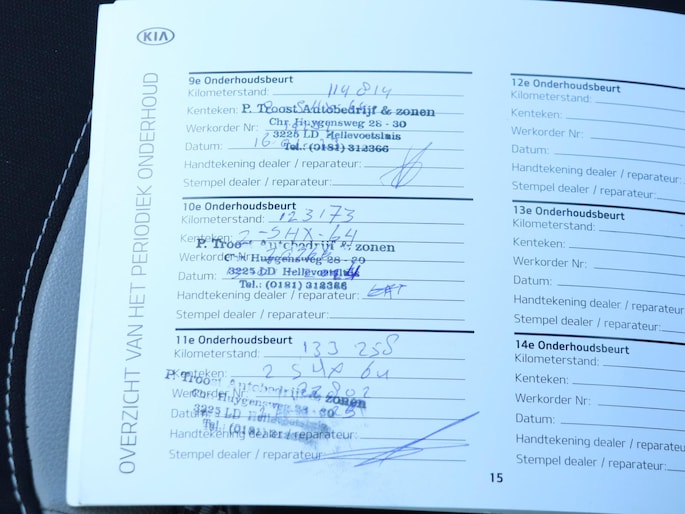 KIA
OVERZICHT VAN HET PERIODIEK ONDERHOUD
9e Onderhoudsbeurt
Kilometerstand: 114 814
Kenteken:
P. Troost Autobedrijf & zonen
Chr. Huygensweg 28 - 30
Werkorder Nr:
3225 LD Hellevoetsluis
Datum: 16-
Tel.: (0181) 312366
Handtekening dealer / reparateur:
Stempel dealer / reparateur:
10e Onderhoudsbeurt
Kilometerstand: 123173
Kenteken: 2-SHX-64
P. Troost Autobedrijf & zonen
Werkorder Nr:
Chr. Huygensweg 28 - 30
Datum:
3225 LD Hellevoetsluis
Tel.: (0181) 312366
Handtekening dealer / reparateur:
Stempel dealer / reparateur:
11e Onderhoudsbeurt
Kilometerstand: 133 258
Kenteken: 2 SHX 64
P. Troost Autobedrijf & zonen
Werkorder Nr:
Chr. Huygensweg 28 - 30
Datum:
3225 LD Hellevoetsluis
Tel.: (0181)
Handtekening dealer / reparateur:
Stempel dealer / reparateur:
15
12e Onderhoudsbeurt
Kilometerstand:
Kenteken:
Werkorder Nr:
Datum:
Handtekening dealer / reparateur:
Stempel dealer / reparateur:
13e Onderhoudsbeurt
Kilometerstand:
Kenteken:
Werkorder Nr:
Datum:
Handtekening dealer / reparateur:
Stempel dealer / reparateur:
14e Onderhoudsbeurt
Kilometerstand:
Kenteken:
Werkorder Nr:
Datum:
Handtekening dealer / reparateur:
Stempel dealer / reparateur: